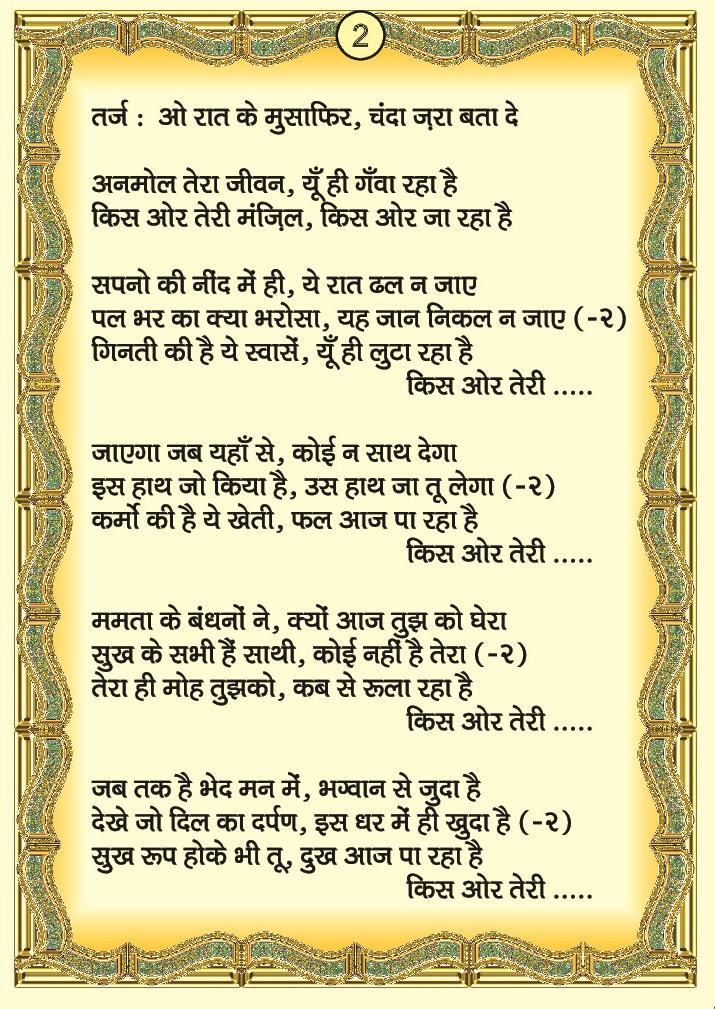 2
तर्ज : ओ रात के मुसाफिर, चंदा ज़रा बता दे
अनमोल तेरा जीवन, यूँ ही गँवा रहा है
किस ओर तेरी मंज़िल, किस ओर जा रहा है
सपनो की नींद में ही, ये रात ढल न जाए
पल भर का क्या भरोसा, यह जान निकल न जाए (-२)
गिनती की है ये स्वासें, यूँ ही लुटा रहा है
किस ओर तेरी .....
जाएगा जब यहाँ से, कोई न साथ देगा
इस हाथ जो किया है, उस हाथ जा तू लेगा (-२)
कर्मो की है ये खेती, फल आज पा रहा है
किस ओर तेरी .....
ममता के बंधनों ने, क्यों आज तुझ को घेरा
सुख के सभी हैं साथी, कोई नहीं है तेरा (-२)
तेरा ही मोह तुझको, कब से रूला रहा है
किस ओर तेरी .....
जब तक है भेद मन में, भग्वान से जुदा है
देखे जो दिल का दर्पण, इस धर में ही खुदा है (-२)
सुख रूप होके भी तू, दुख आज पा रहा है
किस ओर तेरी .....